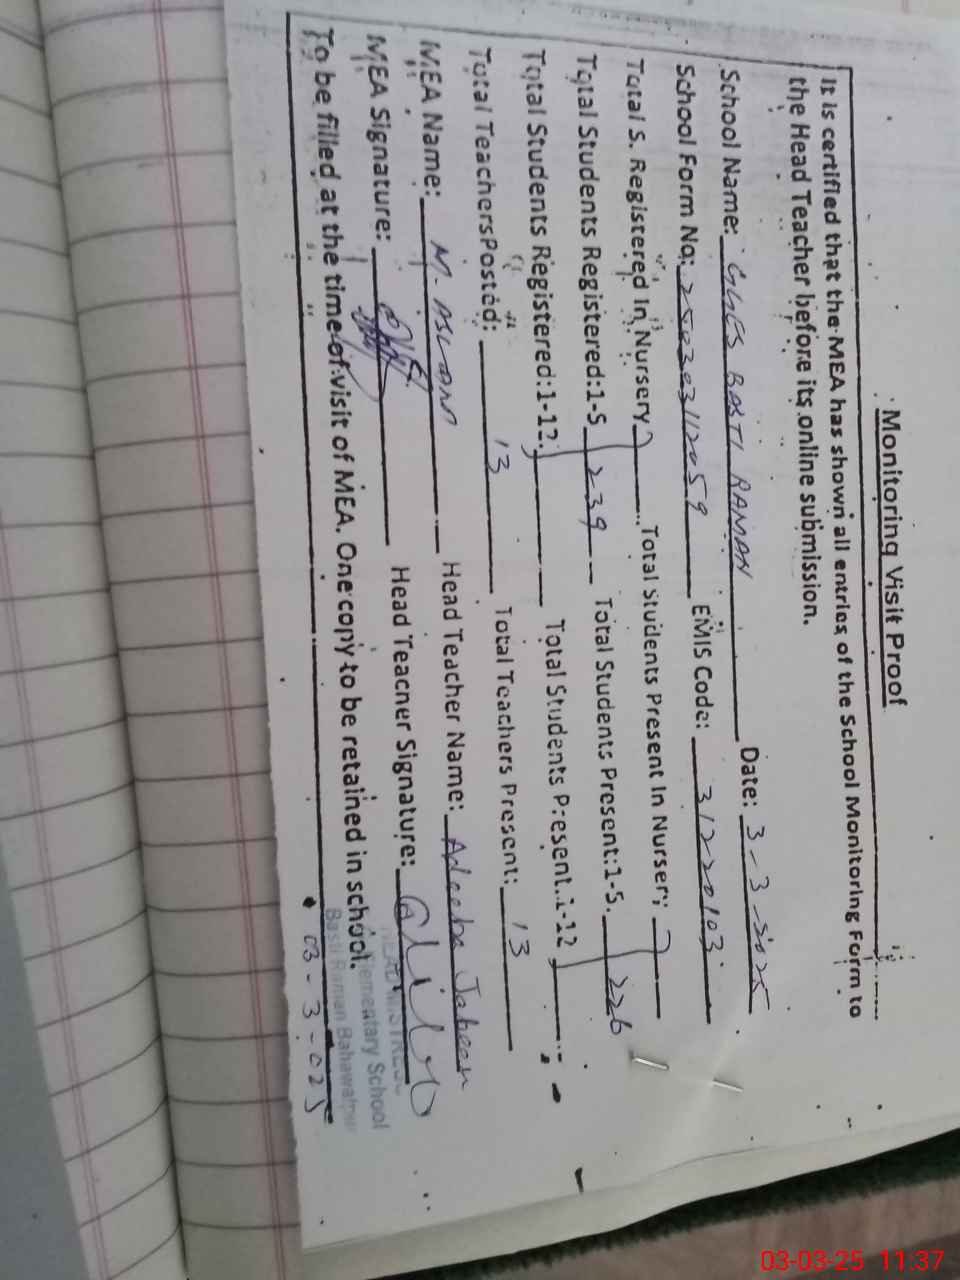 Monitoring Visit Proof
It is certified that the MEA has shown all entries of the School Monitoring Form to
the Head Teacher before its online submission.
School Name: GGES BASTI RAMAN Date: 3-3-2025
School Form No: 250303112059 EMIS Code: 31220103
Total S. Registered In Nursery Total Students Present In Nursery
Total Students Registered:1-5 239 Total Students Present:1-5. 226
Total Students Registered:1-12. Total Students Present.1-12
Total TeachersPosted: 13 Total Teachers Present: 13
MEA Name: M. ASLAM Head Teacher Name: Adeeba Jabeen
MEA Signature: Head Teacher Signature:
To be filled at the time of visit of MEA. One copy to be retained in school.
HEADMISTRESS
Elementary School
Basti Raman Bahawalpur
03-3-025
03-03-25 11:37